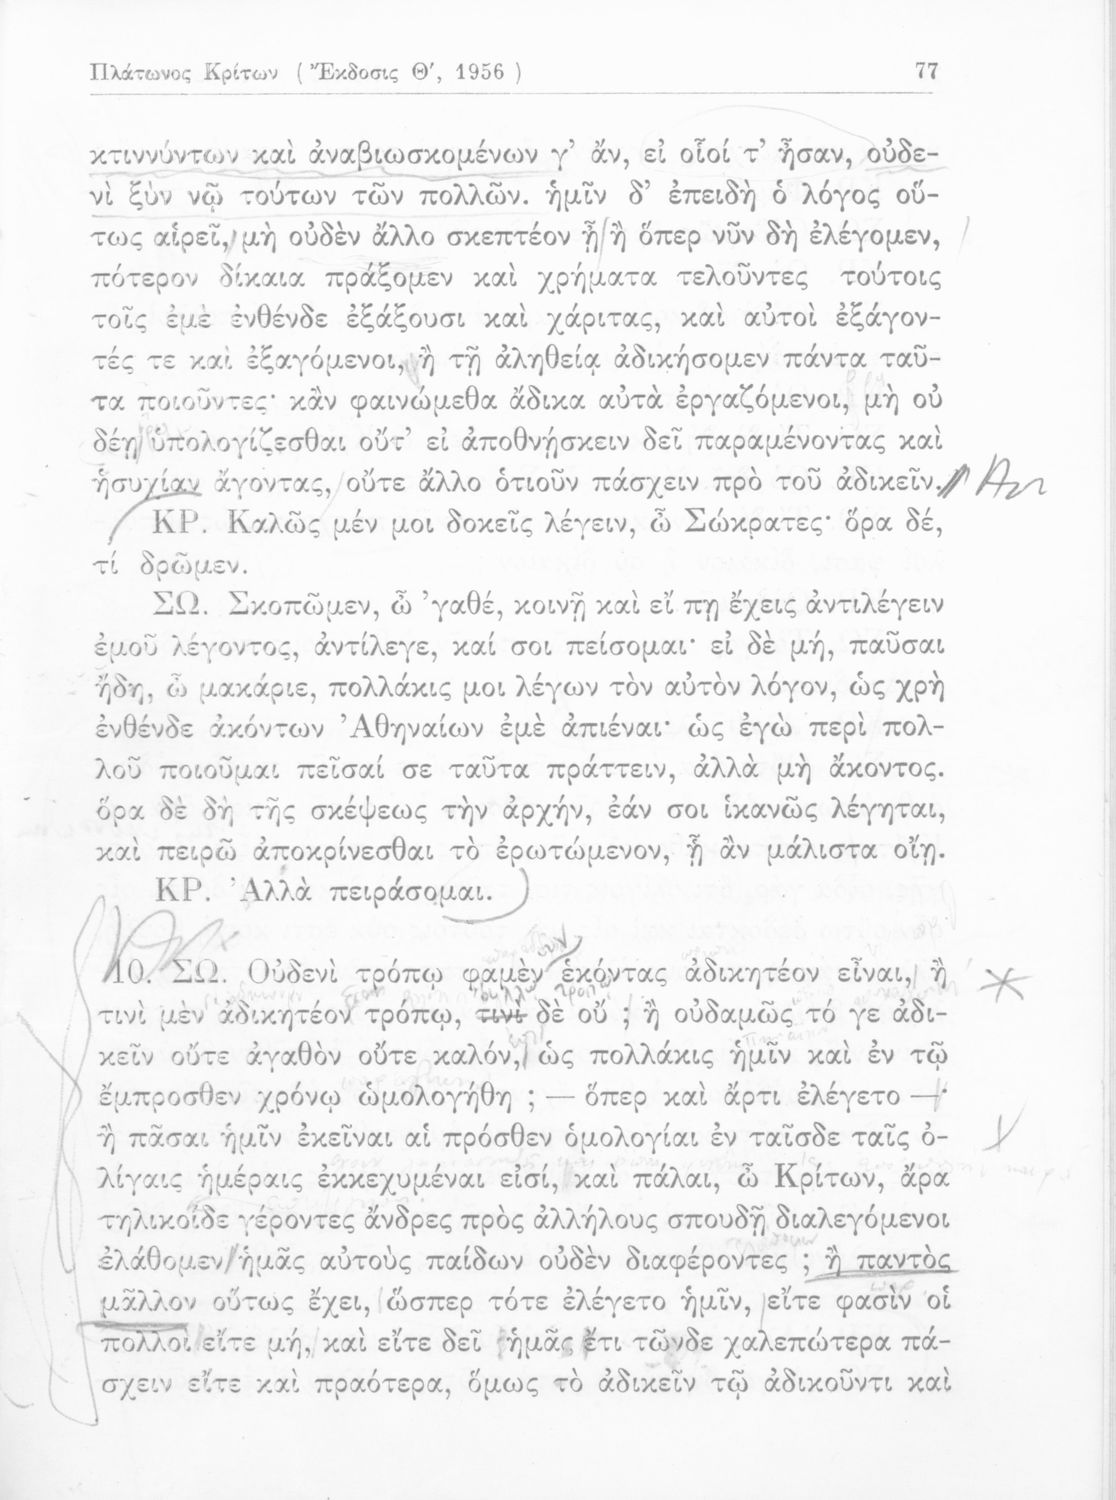 Πλάτωνος Κρίτων ( Ἔκδοσις Θ′, 1956 ) 77
κτιννύντων καὶ ἀναβιωσκομένων γ’ ἄν, εἰ οἷοί τ’ ἦσαν, οὐδε-
νὶ ξὺν νῷ τούτων τῶν πολλῶν. ἡμῖν δ’ ἐπειδὴ ὁ λόγος οὕ-
τως αἱρεῖ, μὴ οὐδὲν ἄλλο σκεπτέον ᾖ ἢ ὅπερ νῦν δὴ ἐλέγομεν,
πότερον δίκαια πράξομεν καὶ χρήματα τελοῦντες τούτοις
τοῖς ἐμὲ ἐνθένδε ἐξάξουσι καὶ χάριτας, καὶ αὐτοὶ ἐξάγον-
τές τε καὶ ἐξαγόμενοι, ἢ τῇ ἀληθείᾳ ἀδικήσομεν πάντα ταῦ-
τα ποιοῦντες· κἂν φαινώμεθα ἄδικα αὐτὰ ἐργαζόμενοι, μὴ οὐ
δέῃ ὑπολογίζεσθαι οὔτ’ εἰ ἀποθνῄσκειν δεῖ παραμένοντας καὶ
ἡσυχίαν ἄγοντας, οὔτε ἄλλο ὁτιοῦν πάσχειν πρὸ τοῦ ἀδικεῖν.
ΚΡ. Καλῶς μέν μοι δοκεῖς λέγειν, ὦ Σώκρατες· ὅρα δέ,
τί δρῶμεν.
ΣΩ. Σκοπῶμεν, ὦ ’γαθέ, κοινῇ καὶ εἴ πῃ ἔχεις ἀντιλέγειν
ἐμοῦ λέγοντος, ἀντίλεγε, καί σοι πείσομαι· εἰ δὲ μή, παῦσαι
ἤδη, ὦ μακάριε, πολλάκις μοι λέγων τὸν αὐτὸν λόγον, ὡς χρὴ
ἐνθένδε ἀκόντων Ἀθηναίων ἐμὲ ἀπιέναι· ὡς ἐγὼ περὶ πολ-
λοῦ ποιοῦμαι πεῖσαί σε ταῦτα πράττειν, ἀλλὰ μὴ ἄκοντος.
ὅρα δὲ δὴ τῆς σκέψεως τὴν ἀρχήν, ἐάν σοι ἱκανῶς λέγηται,
καὶ πειρῶ ἀποκρίνεσθαι τὸ ἐρωτώμενον, ᾗ ἂν μάλιστα οἴῃ.
ΚΡ. Ἀλλὰ πειράσομαι.
10. ΣΩ. Οὐδενὶ τρόπῳ φαμὲν ἑκόντας ἀδικητέον εἶναι, ἢ
τινὶ μὲν ἀδικητέον τρόπῳ, τινὶ δὲ οὔ ; ἢ οὐδαμῶς τό γε ἀδι-
κεῖν οὔτε ἀγαθὸν οὔτε καλόν, ὡς πολλάκις ἡμῖν καὶ ἐν τῷ
ἔμπροσθεν χρόνῳ ὡμολογήθη ; — ὅπερ καὶ ἄρτι ἐλέγετο —·
ἢ πᾶσαι ἡμῖν ἐκεῖναι αἱ πρόσθεν ὁμολογίαι ἐν ταῖσδε ταῖς ὀ-
λίγαις ἡμέραις ἐκκεχυμέναι εἰσί, καὶ πάλαι, ὦ Κρίτων, ἄρα
τηλικοίδε γέροντες ἄνδρες πρὸς ἀλλήλους σπουδῇ διαλεγόμενοι
ἐλάθομεν ἡμᾶς αὐτοὺς παίδων οὐδὲν διαφέροντες ; ἢ παντὸς
μᾶλλον οὕτως ἔχει, ὥσπερ τότε ἐλέγετο ἡμῖν, εἴτε φασὶν οἱ
πολλοὶ εἴτε μή, καὶ εἴτε δεῖ ἡμᾶς ἔτι τῶνδε χαλεπώτερα πά-
σχειν εἴτε καὶ πραότερα, ὅμως τὸ ἀδικεῖν τῷ ἀδικοῦντι καὶ